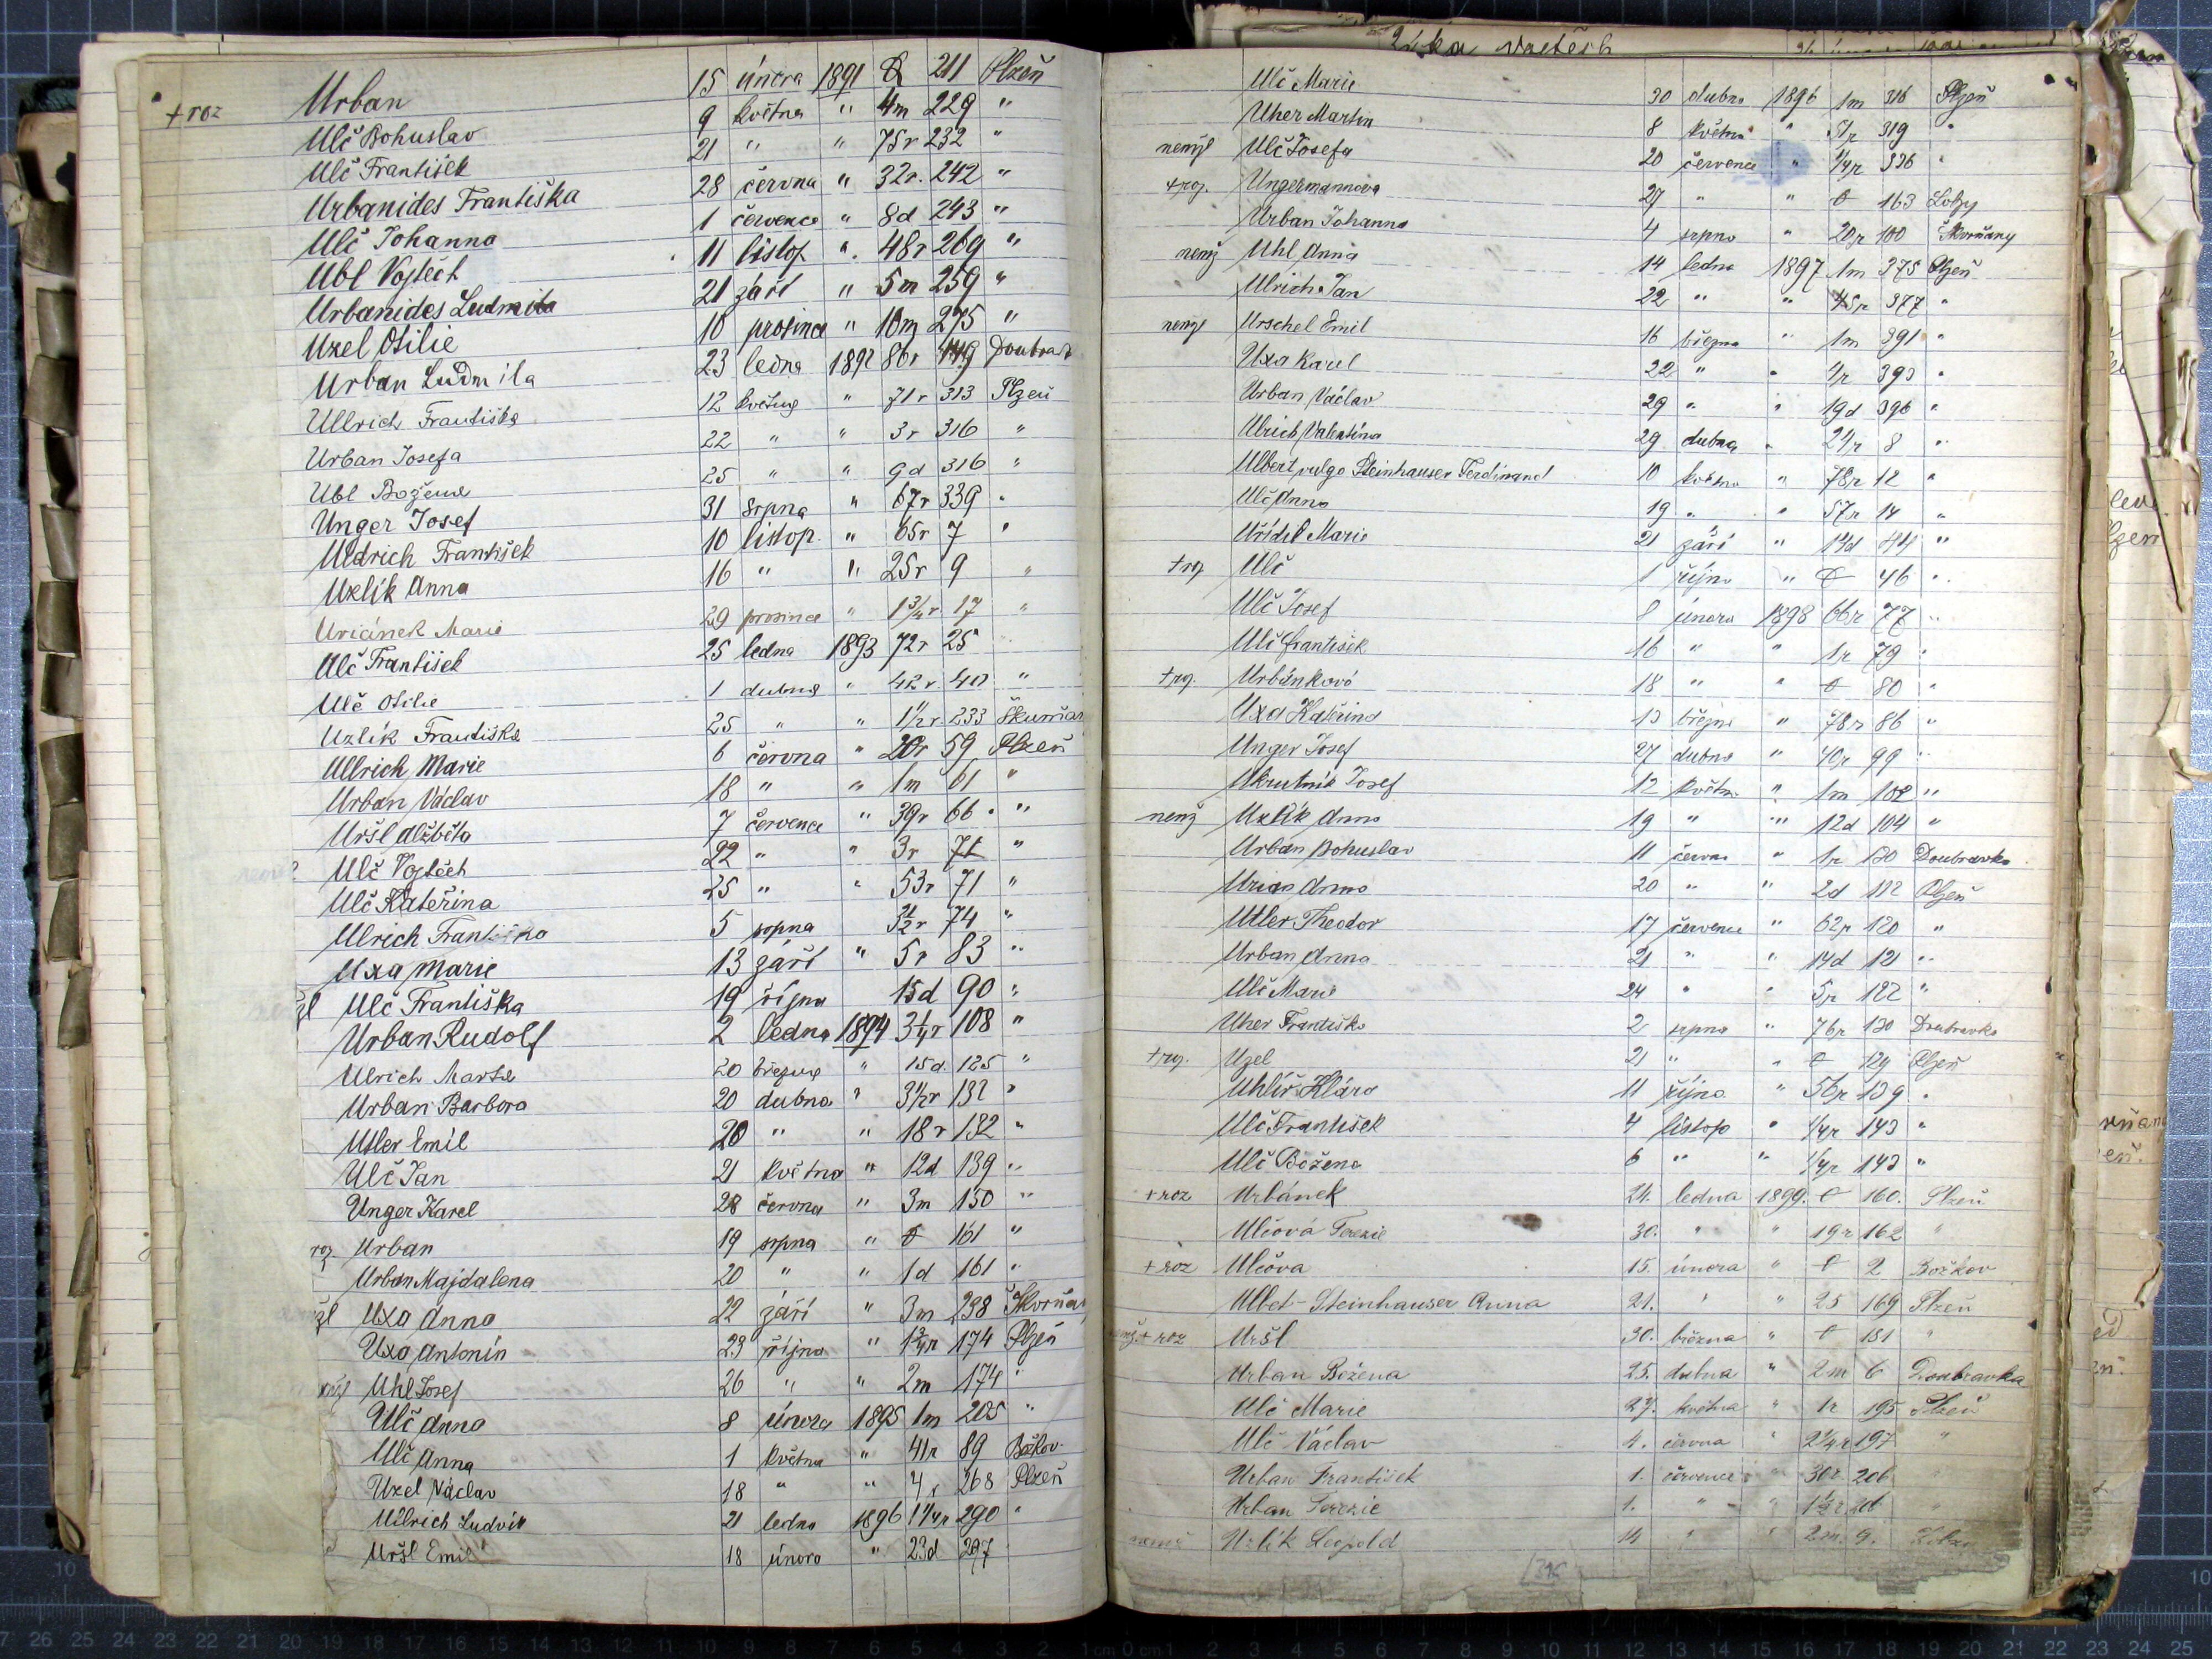 + roz Urban 15 února 1891 0 211 Plzeň
Ulč Bohuslav 9 května " 4m 229 "
Ulč František 21 " " 75r 232 "
Urbanides Františka 28 června " 32r. 242 "
Ulč Johanna 1 července " 8d 243 "
Ubl Vojtěch 11 listop " 48r 269 "
Urbanides Ludmila 21 září " 5m 259 "
Uzel Otilie 10 prosince " 10m 275 "
Urban Ludmila 23 ledna 1892 86r 149 Doubrav
Ullrich Františka 12 května " 71r 313 Plzeň
Urban Josefa 22 " " 3r 316 "
Ubl Božena 25 " " 9d 316 "
Unger Josef 31 srpna " 67r 339 "
Uldrich František 10 listop. " 65r 7 "
Uzlík Anna 16 " " 25r 9 "
Uriánek Marie 29 prosince " 1 3/4 r. 17 "
Ulč František 25 ledna 1893 72r 25
Ulč Otilie 1 dubna " 42r 40 "
Uzlík Františka 25 " " 1 1/2 r. 233 Skurňan
Ullrich Marie 6 června " 20r 59 Plzeň
Urban Václav 18 " " 1m 61 "
Uršl Alžběta 7 července " 39r 66 "
Ulč Vojtěch 22 " " 3r 71 "
Ulč Kateřina 25 " " 53r 71 "
Ulrich Františka 5 srpna 74 "
Uxa Marie 13 září " 5r 83 "
Ulč Františka 19 října 15d 90 "
Urban Rudolf 2 ledna 1894 3 1/4 r 108 "
Ulrich Marta 20 března " 15d. 125 "
Urban Barbora 20 dubna " 3 1/2 r 132 "
Utler Emil 20 " " 18r 132 "
Ulč Jan 21 května " 12d 139 "
Unger Karel 28 června " 3m 150 "
roz. Urban 19 srpna " 0 161 "
Urban Majdalena 20 " " 1d 161 "
žl Uxa Anna 22 září " 3m 238 Skorňa
Uxa Antonín 23 října " 1 3/4 r 174 Plzeň
Uhl Josef 26 " " 2m 174 "
Ulč Anna 8 února 1895 1m 205 "
Ulč Anna 1 května " 41r 89 Božkov
Uzel Václav 18 " " 4r 268 Plzeň
Ullrich Ludvík 21 ledna 1896 1 1/4 r 290 "
Uršl Emil 18 února " 23d 297
Ulč Marie 30 dubna 1896 1m 316 Plzeň
Uher Martin 8 května " 51r 319 "
nemžl Ulč Josefa 20 července " 1/4 r 336 "
+ roz. Ungermannova 27 " " 0 163 Lobzy
Urban Johanna 4 srpna " 20r 100 Skvrňany
nemž Uhl Anna 14 ledna 1897 1m 375 Plzeň
Ulrich Jan 22 " " 45r 377 "
nemžl Urschel Emil 16 března " 1m 391 "
Uxa Karel 22 " " 4r 393 "
Urban Václav 29 " " 19d 396 "
Ulrich Valentina 29 dubna " 21r 8 "
Ulbert vulgo Steinhauser Ferdinand 10 května " 78r 12 "
Ulč Anna 19 " " 57r 14 "
Uřídil Marie 21 září " 14d 44 "
+ roz Ulč 1 října " 0 46 "
Ulč Josef 8 února 1898 66r 77 "
Ulč František 16 " " 1r 79 "
+ roz. Urbánková 18 " " 0 80 "
Uxa Kateřina 13 března " 78r 86 "
Unger Josef 27 dubna " 40r 99 "
Ukrutník Josef 12 května " 1m 102 "
nemž Uzlík Anna 19 " " 12d 104 "
Urban Bohuslav 11 června " 1r 130 Doubravka
Urias Anna 20 " " 2d 112 Plzeň
Utler Theodor 17 července " 62r 120 "
Urban Anna 21 " " 14d 121 "
Ulč Marie 24 " " 5r 122 "
Uher Františka 2 srpna " 76r 130 Doubravka
+ roz. Uzel 21 " " 0 129 Plzeň
Uhlíř Klára 11 října " 56r 139 "
Ulč František 4 listop " 1/4 r 143 "
Ulč Božena 6 " " 1/4 r 143 "
+ roz Urbánek 24. ledna 1899. 0 160. Plzeň
Ulčová Terezie 30. " " 19r 162 "
+ roz Ulčova 15. února " 0 2 Božkov
Ulbet-Steinhauser Anna 21. " " 25 169 Plzeň
+ roz Uršl 30. března " 0 181 "
Urban Božena 25. dubna " 2m 6 Doubravka
Ulč Marie 27. května " 1r 195 Plzeň
Ulč Václav 4. června " 2 1/4 r 197 "
Urban František 1. července " 30r 206 "
Urban Terezie 1. " " "
Uzlík Leopold 14 " " 2m. 9. Lobzy